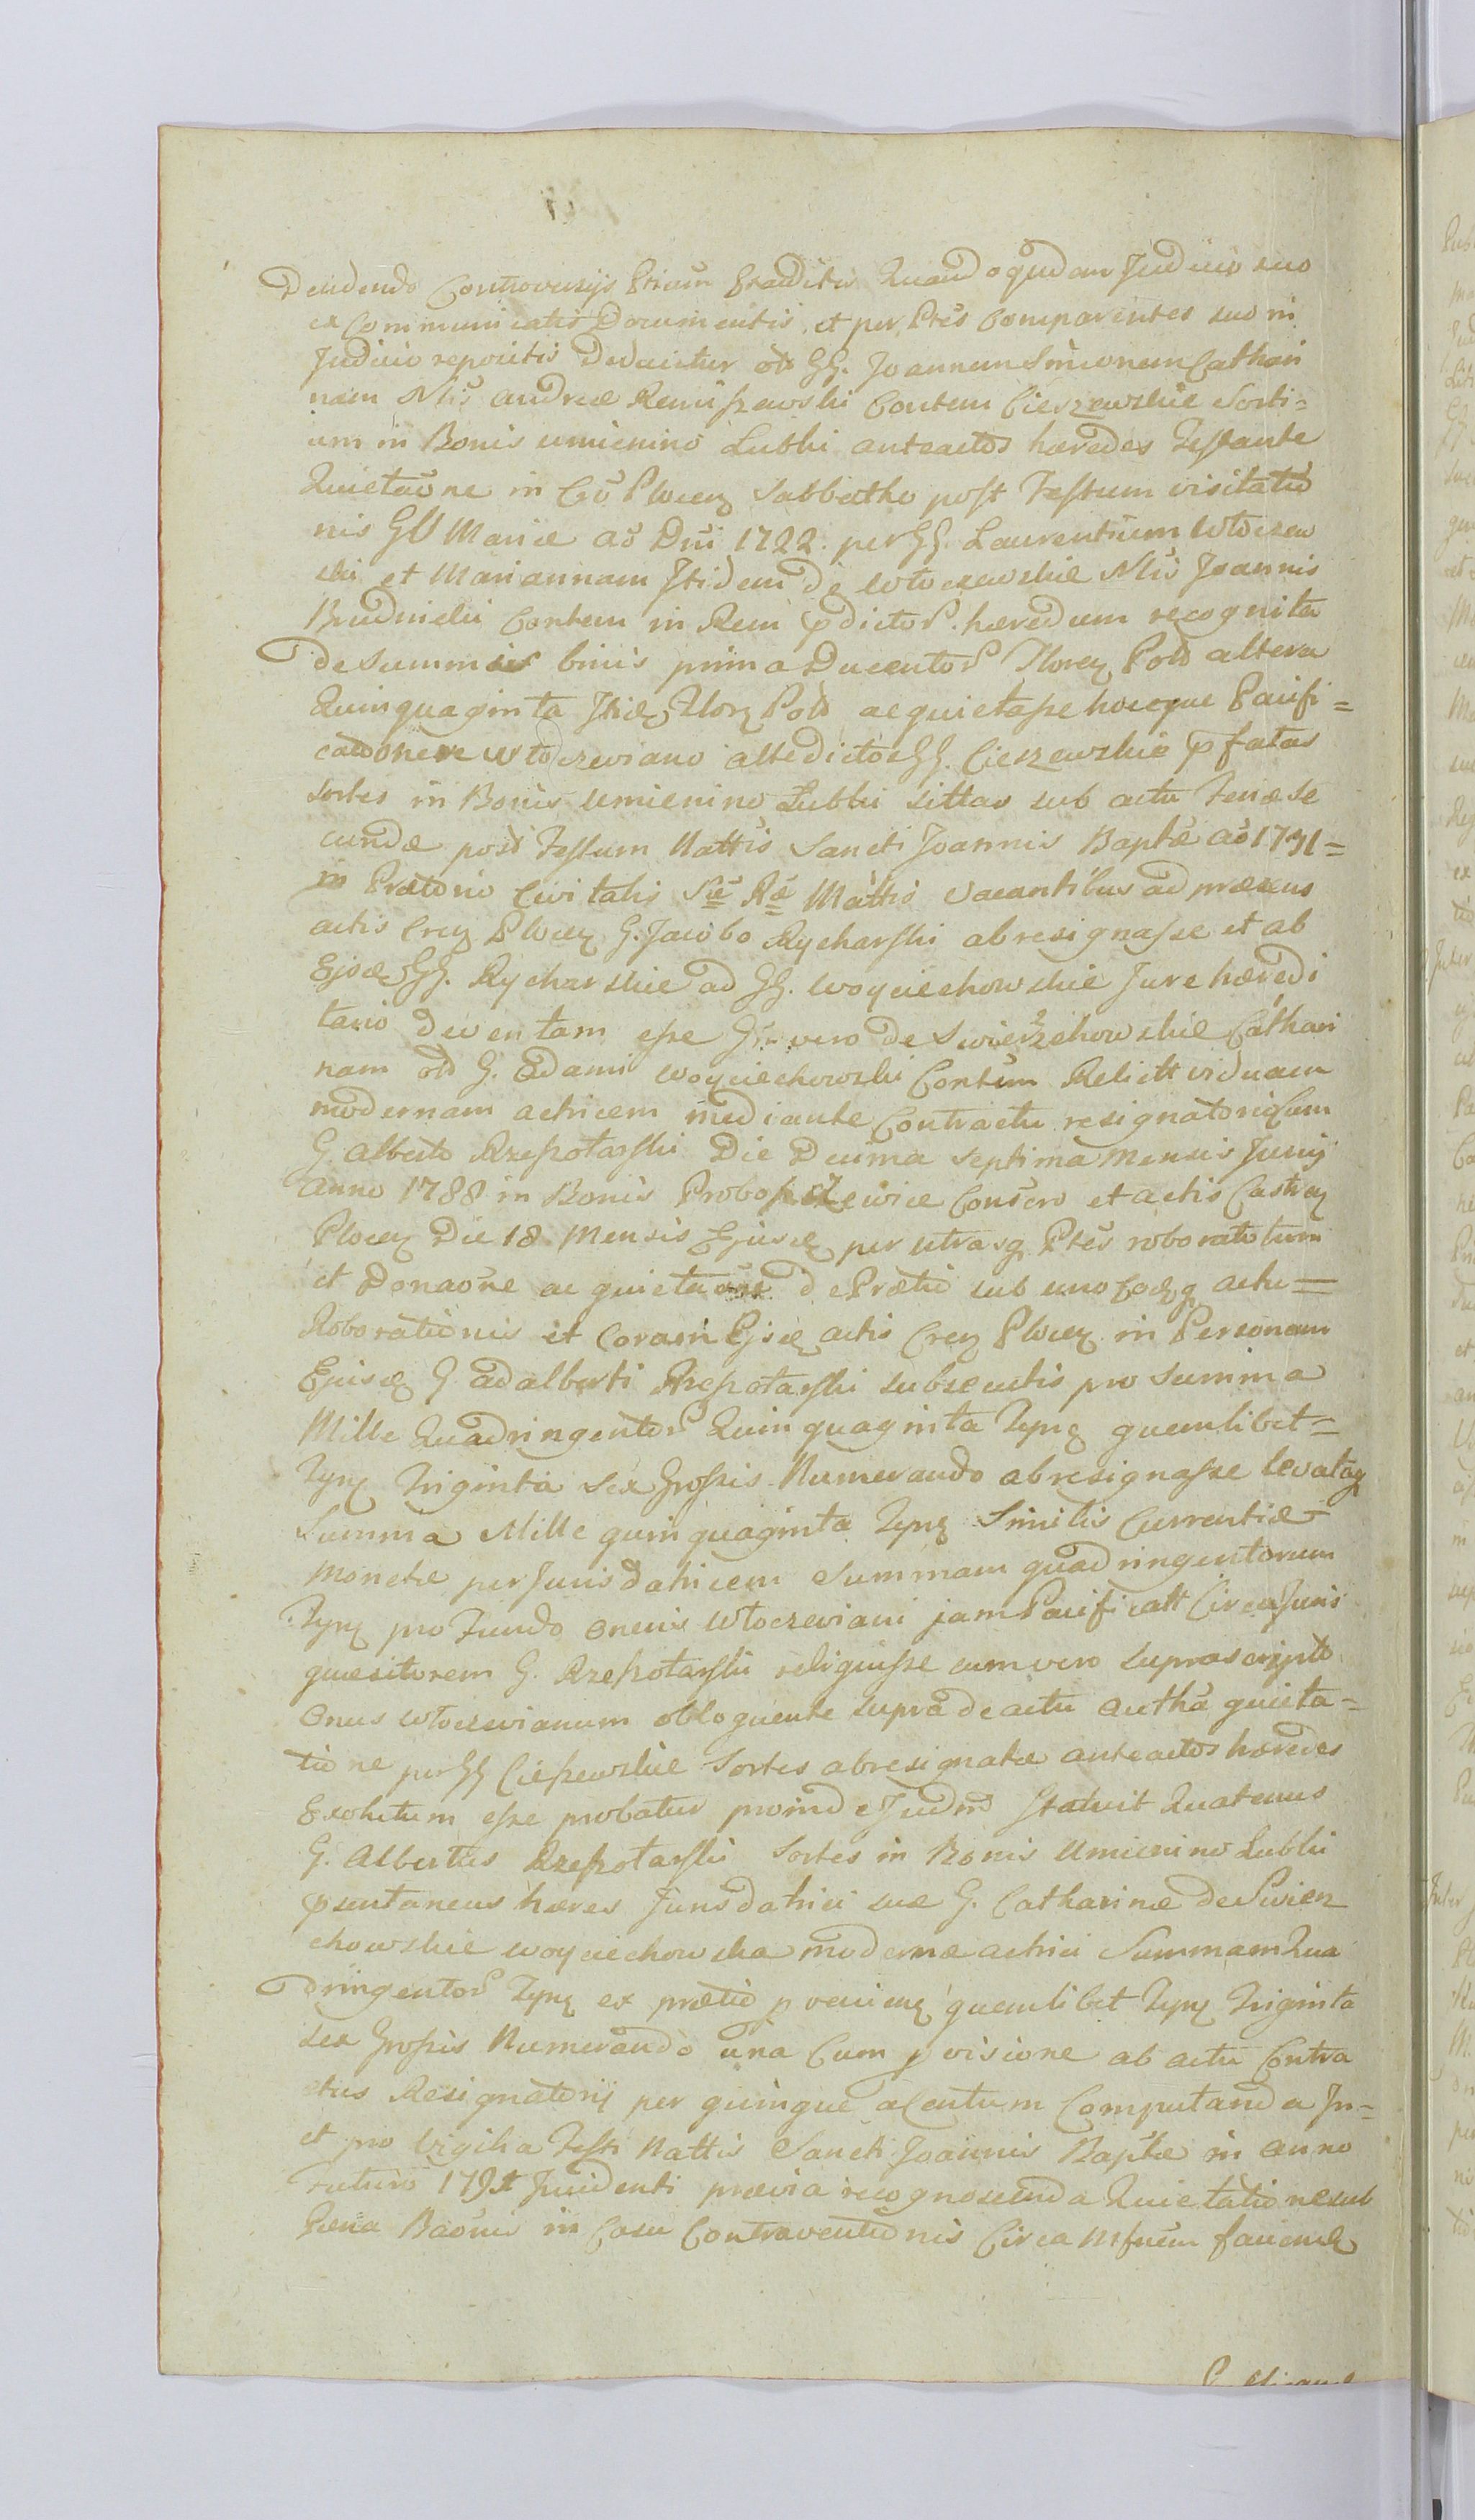 Decidendo Controversijs Ptium Exaditis Quandoquidem Judicio suo
ex Communicatis Documentis et per Ptes Comparentes suo in
Judicio repositis Deducitur olt GG. Joannem Simonem Catha
nam Nlis Andreæ Reniszewski Contem Cieszewskie Sorti=
um in Bonis Umienino Lubki anteactos hæredes Testante
Quietaōne in Crō Plocen Sabbatho post Festum visitatio
nis BV Mariæ aō Dni 1722. per GG. Laurentium Wtoczew
ski et Mariannam Itidem de Wtoczewskie Nlis Joannis
Brudnicki Contem in Rem pdictor. hæredum recognita
de summis binis prima Ducentor Floren Pold altera
Quinquaginta Itid Floren Pold acquietasse hocque Pacifi=
cato onere Wtoczeviano attedictos GG. Cieszewskie pfatas
Sortes in Bonis Umienino Lubki sittas sub actu Feriæ Se
cundæ post Festum Nattis Sancti Joannis Baptæ aō 1731=
in Prætorio Civitatis Sæ Ræ Mattis Vacantibus ad præsens
actis Cren Plocen G. Jacobo Rycharski abresignasse et ab
Ejsd GG. Rycharskie ad GG. Woyciechowskie Jure hæredi
tario deventam esse Gm vero de Swierzchowskie Cathari
nam olt G. Adami Woyciechowski Contem Relictt viduam
modernam actricem mediante Contractu resignatorio Cum
G. Alberto Rzeszotarski Die Decima Septima Mensis Junij
Anno 1788 in Bonis Proboszczewice Conscro et actis Castren
Plocen Die 18 Mensis Ejusd per utrasq Ptes roboratoturm
et Donaōne ac quietaōne de Prætio sub uno Eodq actu=
Roborationis et Coram Ejsd actis Cren Plocen in Personam
Ejusd G. Adalberti Rzeszotarski subsecutis pro Summa
Mille Quadringentor Quinquaginta Tynf quemlibet=
Tynf Triginta Sex Grossis Numerando abresignasse levataq
Summa Mille quinquaginta Tynf Similis Currentiæ
Monetæ per Jurisdatricem Summam quadringentorum
Tynf pro Fundo Oneris Wtoczeviani jam Pacificatt Circa Juris
quæsitorem G. Rzeszotarski reliquisse cum vero Suprascripto
Onus Wtoczevianum obloquente supra de actu Authā quieta=
tione per GG Cieszewskie Sortes abresignatæ anteactos hæredes
Exolutum esse probatur proinde Judm Statuit Quatenus
G. Albertus Rzeszotarski Sortes in Bonis Umienino Lubki
psentaneus hæres Jurisdatrici suæ G. Catharinæ de Swierz
chowskie Woyciechowska modernæ actrici Summam Qua
dringentor Tynf ex prætio pvenien quemlibet Tynf Triginta
sex Grossis Numerando una Cum pvisione ab actu Contra
ctus Resignatorij per quinque a Centum Computanda In=
et pro Vigilia Festi Nattis Sancti Joannis Baptæ in Anno
Futuro Incidenti prævia recognoscenda Quietatione sub
Pæna Baōnis in Casu Contraventionis Circa